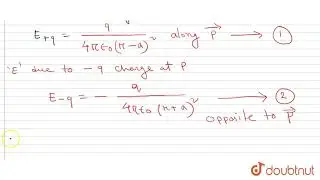 E+q = q / 4πε0 (r-a)² along P⃗ → ①
'E' due to -q charge at P
E-q = - q / 4πε0 (r+a)² → ②
opposite to P⃗
doubtnut